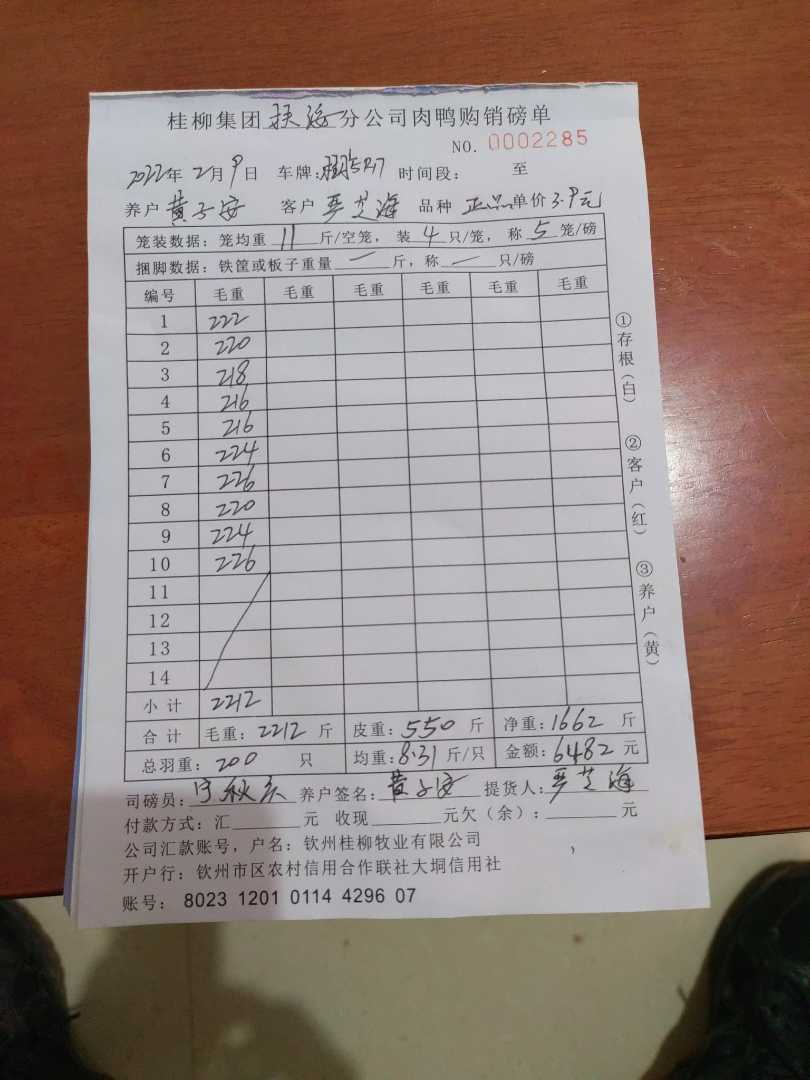 桂柳集团扶绥分公司肉鸭购销磅单
NO. 0002285
2022年2月9日 车牌： 时间段： 至
养户 黄子安 客户 严芝海 品种 正品 单价3.9元
笼装数据：笼均重 11 斤/空笼，装 4 只/笼，称 5 笼/磅
捆脚数据：铁筐或板子重量 一 斤，称 一 只/磅
编号 毛重 毛重 毛重 毛重 毛重 毛重
1 222
2 220
3 218
4 216
5 216
6 224
7 226
8 220
9 224
10 226
11
12
13
14
小计 2212
合计 毛重：2212 斤 皮重：550 斤 净重：1662 斤
总羽重：200 只 均重：8.31 斤/只 金额：6482 元
司磅员： 养户签名：黄子安 提货人：严芝海
付款方式：汇 元 收现 元欠（余）： 元
公司汇款账号，户名：钦州桂柳牧业有限公司
开户行：钦州市区农村信用合作联社大垌信用社
账号： 8023 1201 0114 4296 07
①存根（白）
②客户（红）
③养户（黄）